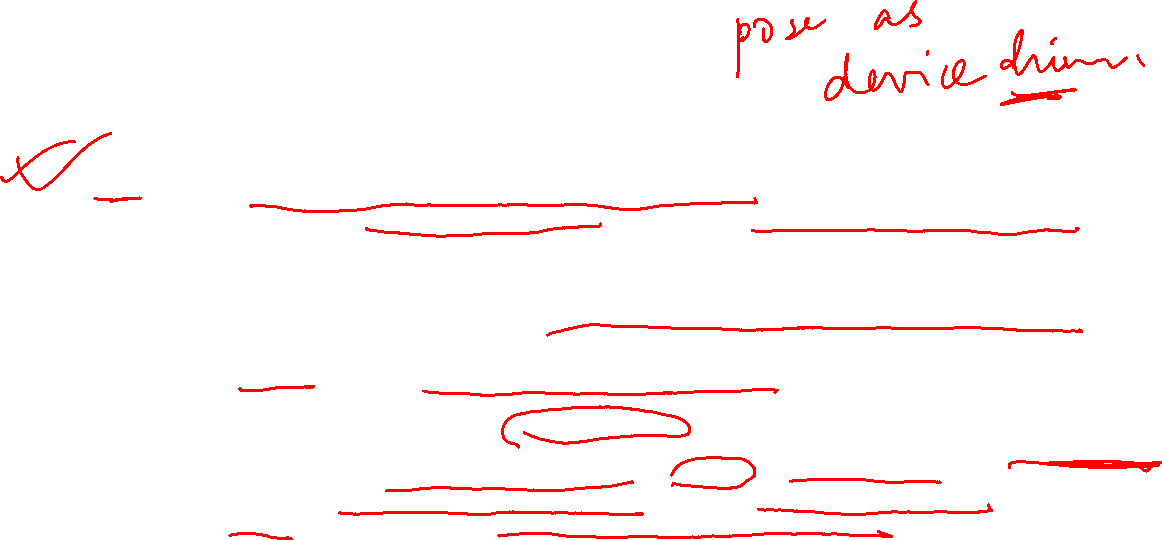 pose as
device driver.